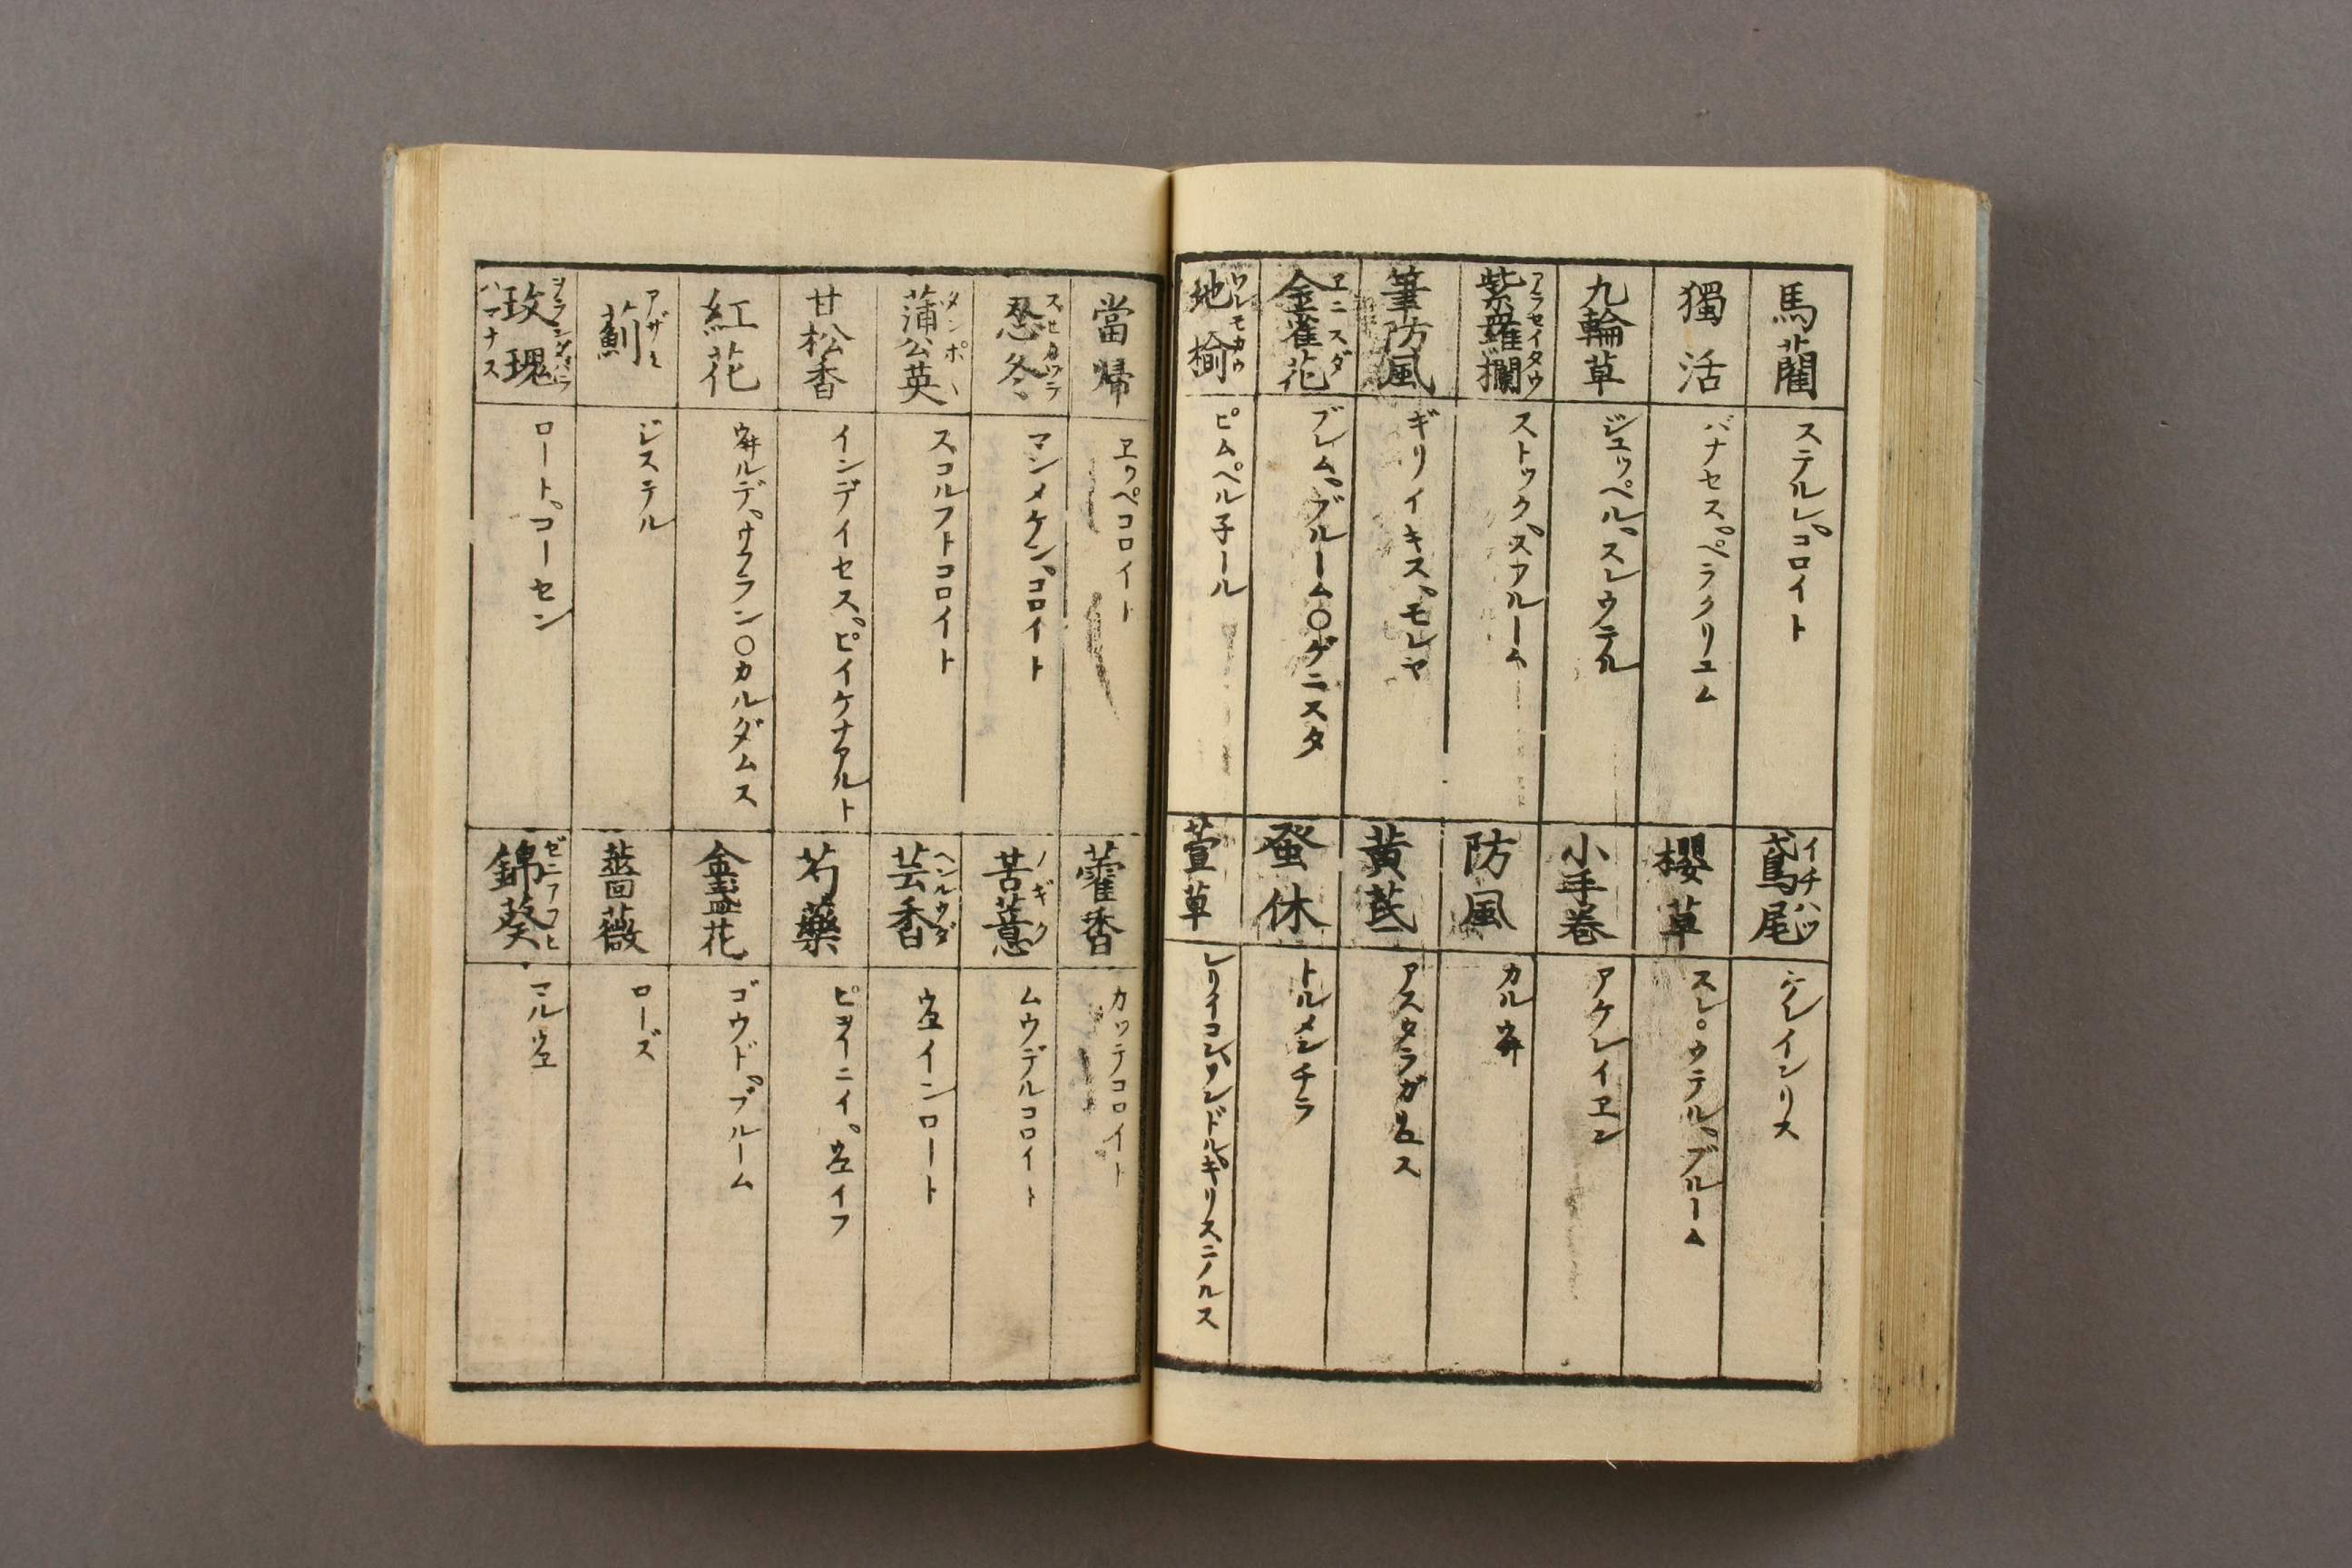 馬藺
ステルレ゚コロイト
獨活
パナセス゚ペラクリユム
九輪草
ジュッペル゚スレウテル
アラセイタウ
紫羅欄
ストック゚ズブルーム
筆防風
ギリイキス゚モレヤ
ヱニスダ
金雀花
ブレム゚ブルーム〇ゲニスタ
ワレモカウ
地楡
ピムペル子ール
イチハツ
鳶尾
インリス
櫻草
スレウテル゚ブルーム
小手巻
アケレイヱン
防風
カル
黄芪
アスタラガ
蚤休
トルメンチラ
萱草
レリイコンソンドル゚キリスニノルス
當帰
ヱッペコロイト
スヒカヅラ
忍冬
マンメケン゚コロイト
タンポヽ
蒲公英
スコルフトコロイト
甘松香
インデイセス゚ピイケナアルト
紅花
ヰルデ゚サフラン〇カルダムス
アザミ
薊
ジステル
ハマナス
玫瑰
ロート゚コーセン
藿香
カッテコロイト
ノギク
苦薏
ムウデルコロイト
ヘンルウダ
芸香
ヱインロート
芍藥
ピヲイニイ゚ヱイフ
金盞花
ゴウド゚ブルーム
薔薇
ローズ
ゼニアフヒ
錦葵
マルヱ